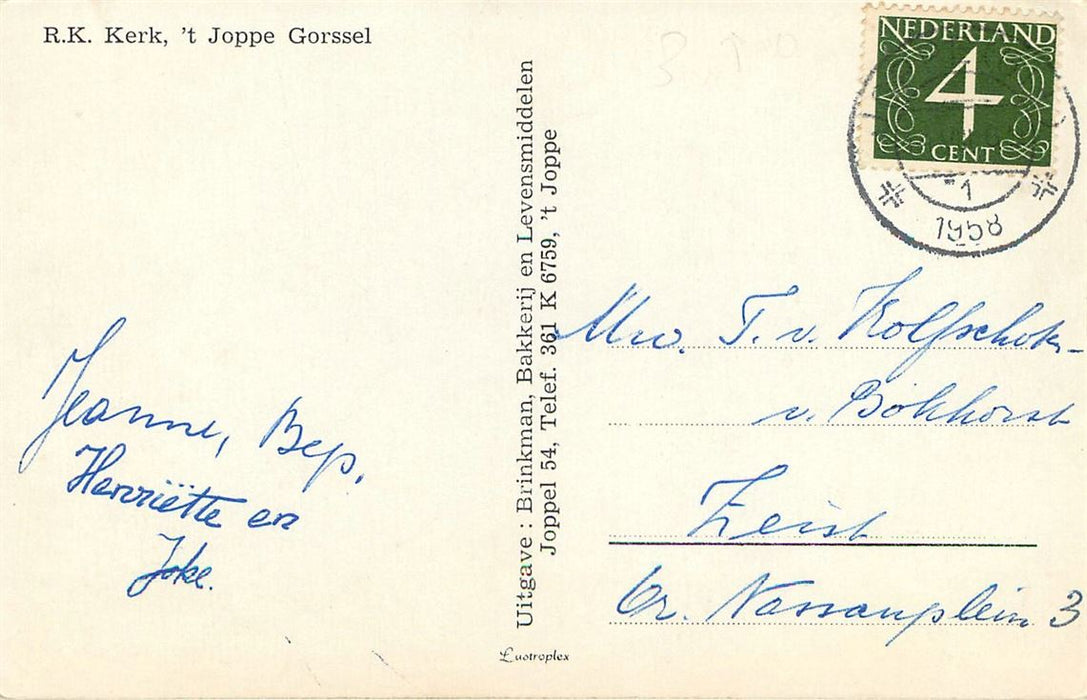 R.K. Kerk, 't Joppe Gorssel
NEDERLAND
4
CENT
1
1958
Uitgave : Brinkman, Bakkerij en Levensmiddelen
Joppel 54, Telef. 361 K 6759, 't Joppe
Mw. T. v. Kolfschoten-
v. Bökhorst
Zeist
Gr. Nassauplein 3
Jeanne, Bep,
Henriëtte en
Joke.
Lustroplex